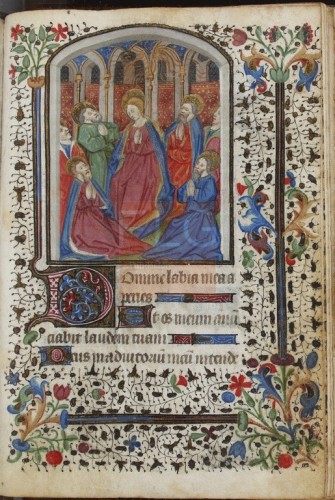 Domine labia mea a
peries Et os meum anū
ciabit laudem tuam
Deus in adiutoriū meū intende